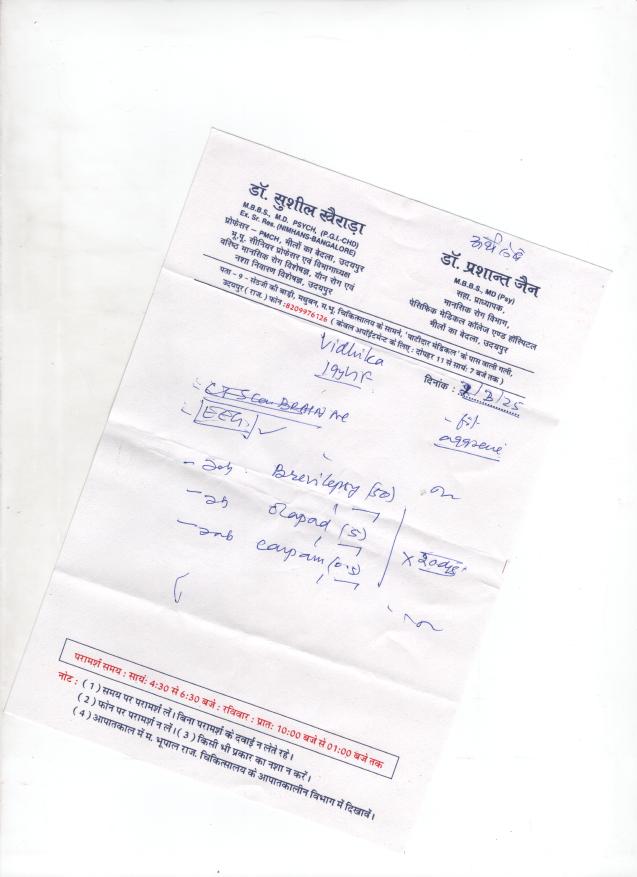 डॉ. सुशील खैराड़ा
M.B.B.S., M.D. PSYCH, (P.G.I.-CHD)
Ex. Sr. Res. (NIMHANS-BANGALORE)
प्रोफेसर – PMCH, भीलों का बेदला, उदयपुर
भू.पू. सीनियर प्रोफेसर एवं विभागाध्यक्ष
वरिष्ठ मानसिक रोग विशेषज्ञ, यौन रोग एवं
नशा निवारण विशेषज्ञ, उदयपुर
डॉ. प्रशान्त जैन
M.B.B.S., MD (Psy)
सहा. प्राध्यापक,
मानसिक रोग विभाग,
पेसिफिक मेडिकल कॉलेज एण्ड हॉस्पिटल
भीलों का बेदला, उदयपुर
पता - 9 - सेठजी की बाड़ी, मधुबन, म.भू. चिकित्सालय के सामने, 'पाटीदार मेडिकल' के पास वाली गली,
उदयपुर ( राज.) फोन :8209976126 ( केवल अपॉईंटमेन्ट के लिए : दोपहर 11 से सायं: 7 बजे तक )
Vidhika
19y/F
दिनांक :
CT Scan BRAIN
EEG
Brevilepsy (50)
Olapad (5)
(0.5)
परामर्श समय : सायं: 4:30 से 6:30 बजे : रविवार : प्रात: 10:00 बजे से 01:00 बजे तक
नोट : ( 1 ) समय पर परामर्श लें। बिना परामर्श के दवाई न लेते रहे।
( 2 ) फोन पर परामर्श न लें। ( 3 ) किसी भी प्रकार का नशा न करें।
( 4 ) आपातकाल में म. भूपाल राज. चिकित्सालय के आपातकालीन विभाग में दिखावें।